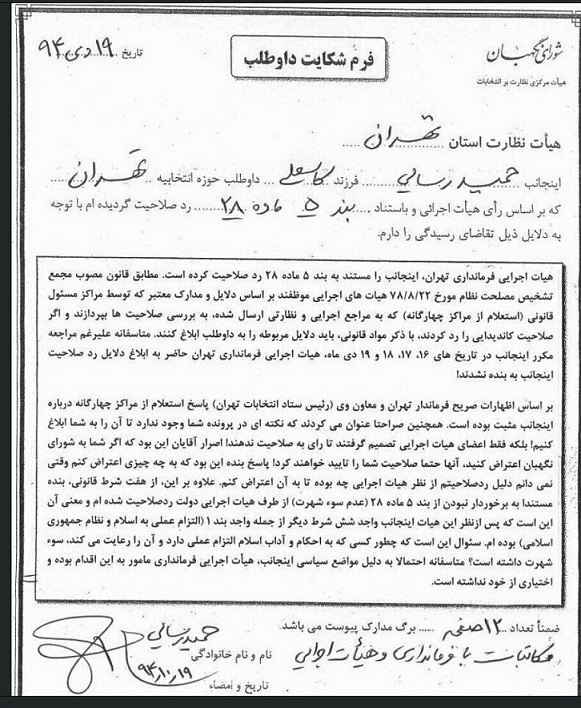 شورای نگهبان
هیأت مرکزی نظارت بر انتخابات
فرم شکایت داوطلب
تاریخ ۱۹ دی ۹۴
هیأت نظارت استان تهران
اینجانب حمید رسایی فرزند داوطلب حوزه انتخابیه تهران
که بر اساس رأی هیأت اجرائی و باستناد بند ۵ ماده ۲۸ رد صلاحیت گردیده ام با توجه
به دلایل ذیل تقاضای رسیدگی را دارم.
هیات اجرایی فرمانداری تهران، اینجانب را مستند به بند ۵ ماده 28 رد صلاحیت کرده است. مطابق قانون مصوب مجمع
تشخیص مصلحت نظام مورخ ۷۸/۸/۲۲ هیات های اجرایی موظفند بر اساس دلایل و مدارک معتبر که توسط مراکز مسئول
قانونی (استعلام از مراکز چهارگانه) که به مراجع اجرایی و نظارتی ارسال شده، به بررسی صلاحیت ها بپردازند و اگر
صلاحیت کاندیدایی را رد کردند، با ذکر مواد قانونی، باید دلایل مربوطه را به داوطلب ابلاغ کنند. متاسفانه علیرغم مراجعه
مکرر اینجانب در تاریخ های ۱۶، ۱۷، ۱۸ و ۱۹ دی ماه، هیات اجرایی فرمانداری تهران حاضر به ابلاغ دلایل رد صلاحیت
اینجانب به بنده نشدند!
بر اساس اظهارات صریح فرماندار تهران و معاون وی (رئیس ستاد انتخابات تهران) پاسخ استعلام از مراکز چهارگانه درباره
اینجانب مثبت بوده است. همچنین صراحتا عنوان می کردند که نکته ای در پرونده شما وجود ندارد تا آن را به شما ابلاغ
کنیم! بلکه فقط اعضای هیات اجرایی تصمیم گرفتند تا رای به صلاحیت ندهند! اصرار آقایان این بود که اگر شما به شورای
نگهبان اعتراض کنید، آنها حتما صلاحیت شما را تایید خواهند کرد! پاسخ بنده این بود که به چه چیزی اعتراض کنم وقتی
نمی دانم دلیل ردصلاحیتم از نظر هیات اجرایی چه بوده تا به آن اعتراض کنم. علاوه بر این، از هفت شرط قانونی، بنده
مستندا به برخوردار نبودن از بند ۵ ماده 28 (عدم سوء شهرت) از طرف هیات اجرایی دولت ردصلاحیت شده ام و معنی آن
این است که پس ازنظر این هیات اینجانب واجد شش شرط دیگر از جمله واجد بند ۱ (التزام عملی به اسلام و نظام جمهوری
اسلامی) بوده ام. سئوال این است که چطور کسی که به احکام و آداب اسلام التزام عملی دارد و آن را رعایت می کند، سوء
شهرت داشته است؟ متاسفانه احتمالا به دلیل مواضع سیاسی اینجانب، هیأت اجرایی فرمانداری مامور به این اقدام بوده و
اختیاری از خود نداشته است.
ضمناً تعداد ۱۲ صفحه برگ مدارک پیوست می باشد.
مکاتبات با فرمانداری و هیأت اجرایی
نام و نام خانوادگی حمید رسایی
تاریخ و امضاء ۹۴/۱۰/۱۹